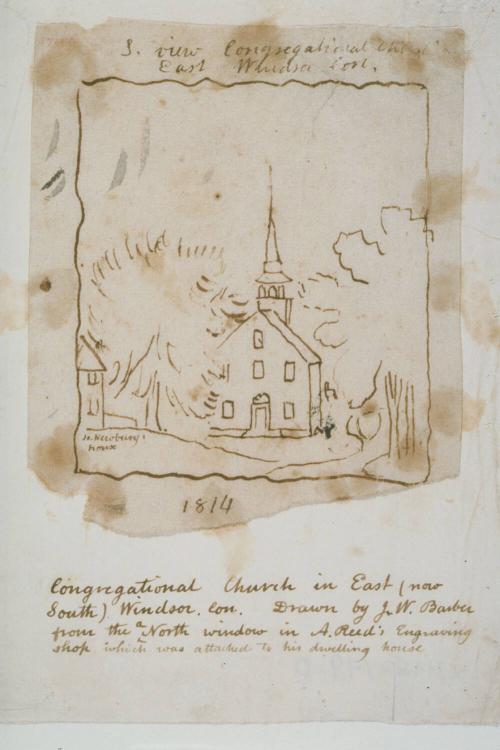 S. view Congregational
East Windsor Con.
house
1814
Congregational Church in East (now
South) Windsor. Con. Drawn by J. W. Barber
from the a North window in A. Reed's Engraving
shop which was attached to his dwelling house